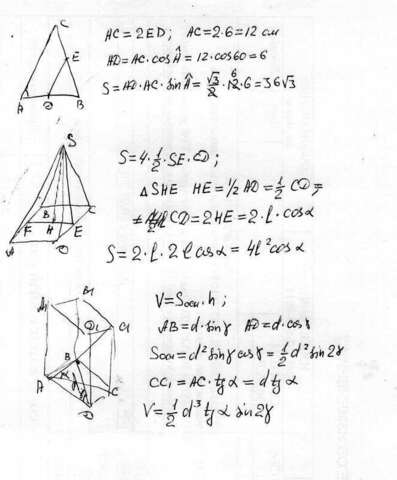 C
E
A D B
AC = 2ED; AC = 2·6 = 12 см
AD = AC·cos Â = 12·cos60 = 6
S = AD·AC·sin Â = √3/2·12·6 = 36√3
6
S
B C
F H E
A D
S = 4·1/2·SE·CD;
△SHE HE = 1/2 AD = 1/2 CD =
CD = 2HE = 2·l·cosα
S = 2·l·2l cosα = 4l²cosα
B₁
A₁ D₁ C₁
B
A α C
D
V = Sосн·h;
AB = d·sinγ AD = d·cosγ
Sосн = d²sinγcosγ = 1/2 d²sin2γ
CC₁ = AC·tgα = d tgα
V = 1/2 d³ tgα sin2γ